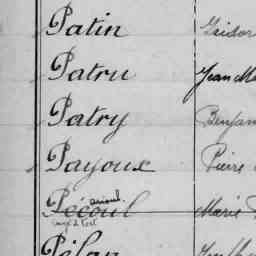 Patin Isidor
Patru Jean Ma
Patry Benjam
Payoux Pierre
Pécoul Marie
Pélan